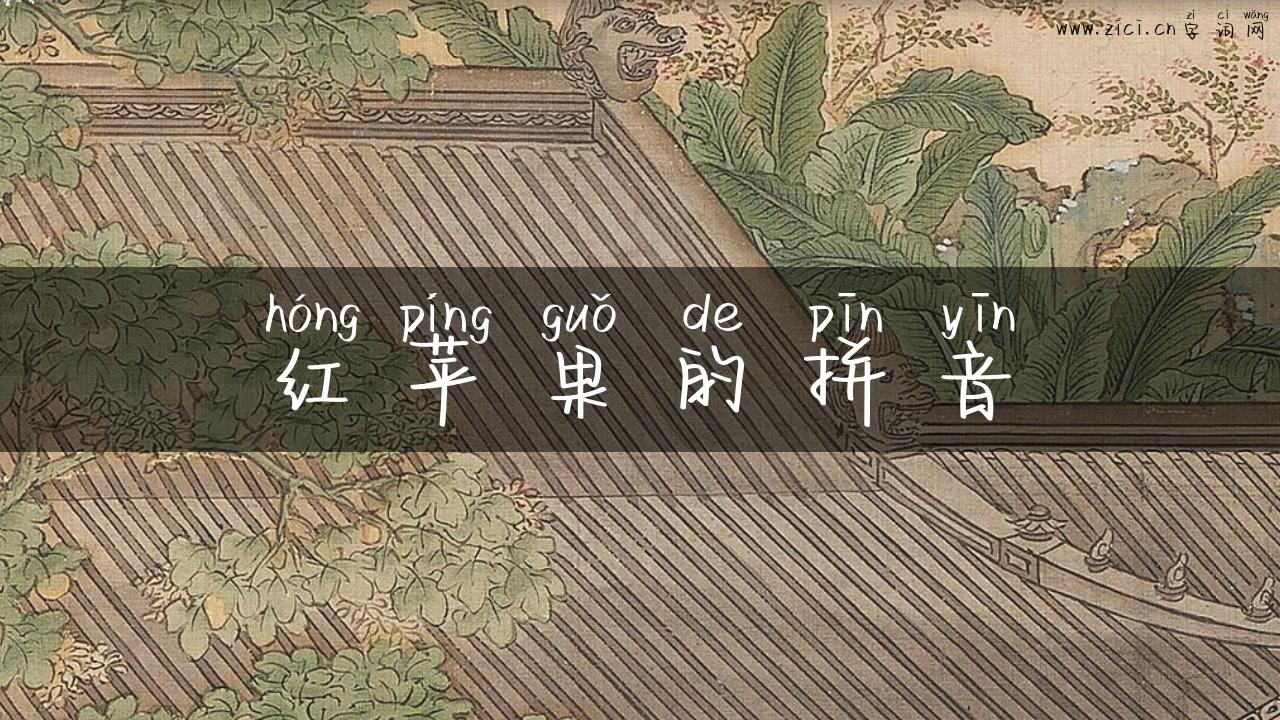 zì cí wǎng
www.zici.cn 字词网
hóng píng guǒ de pīn yīn
红苹果的拼音